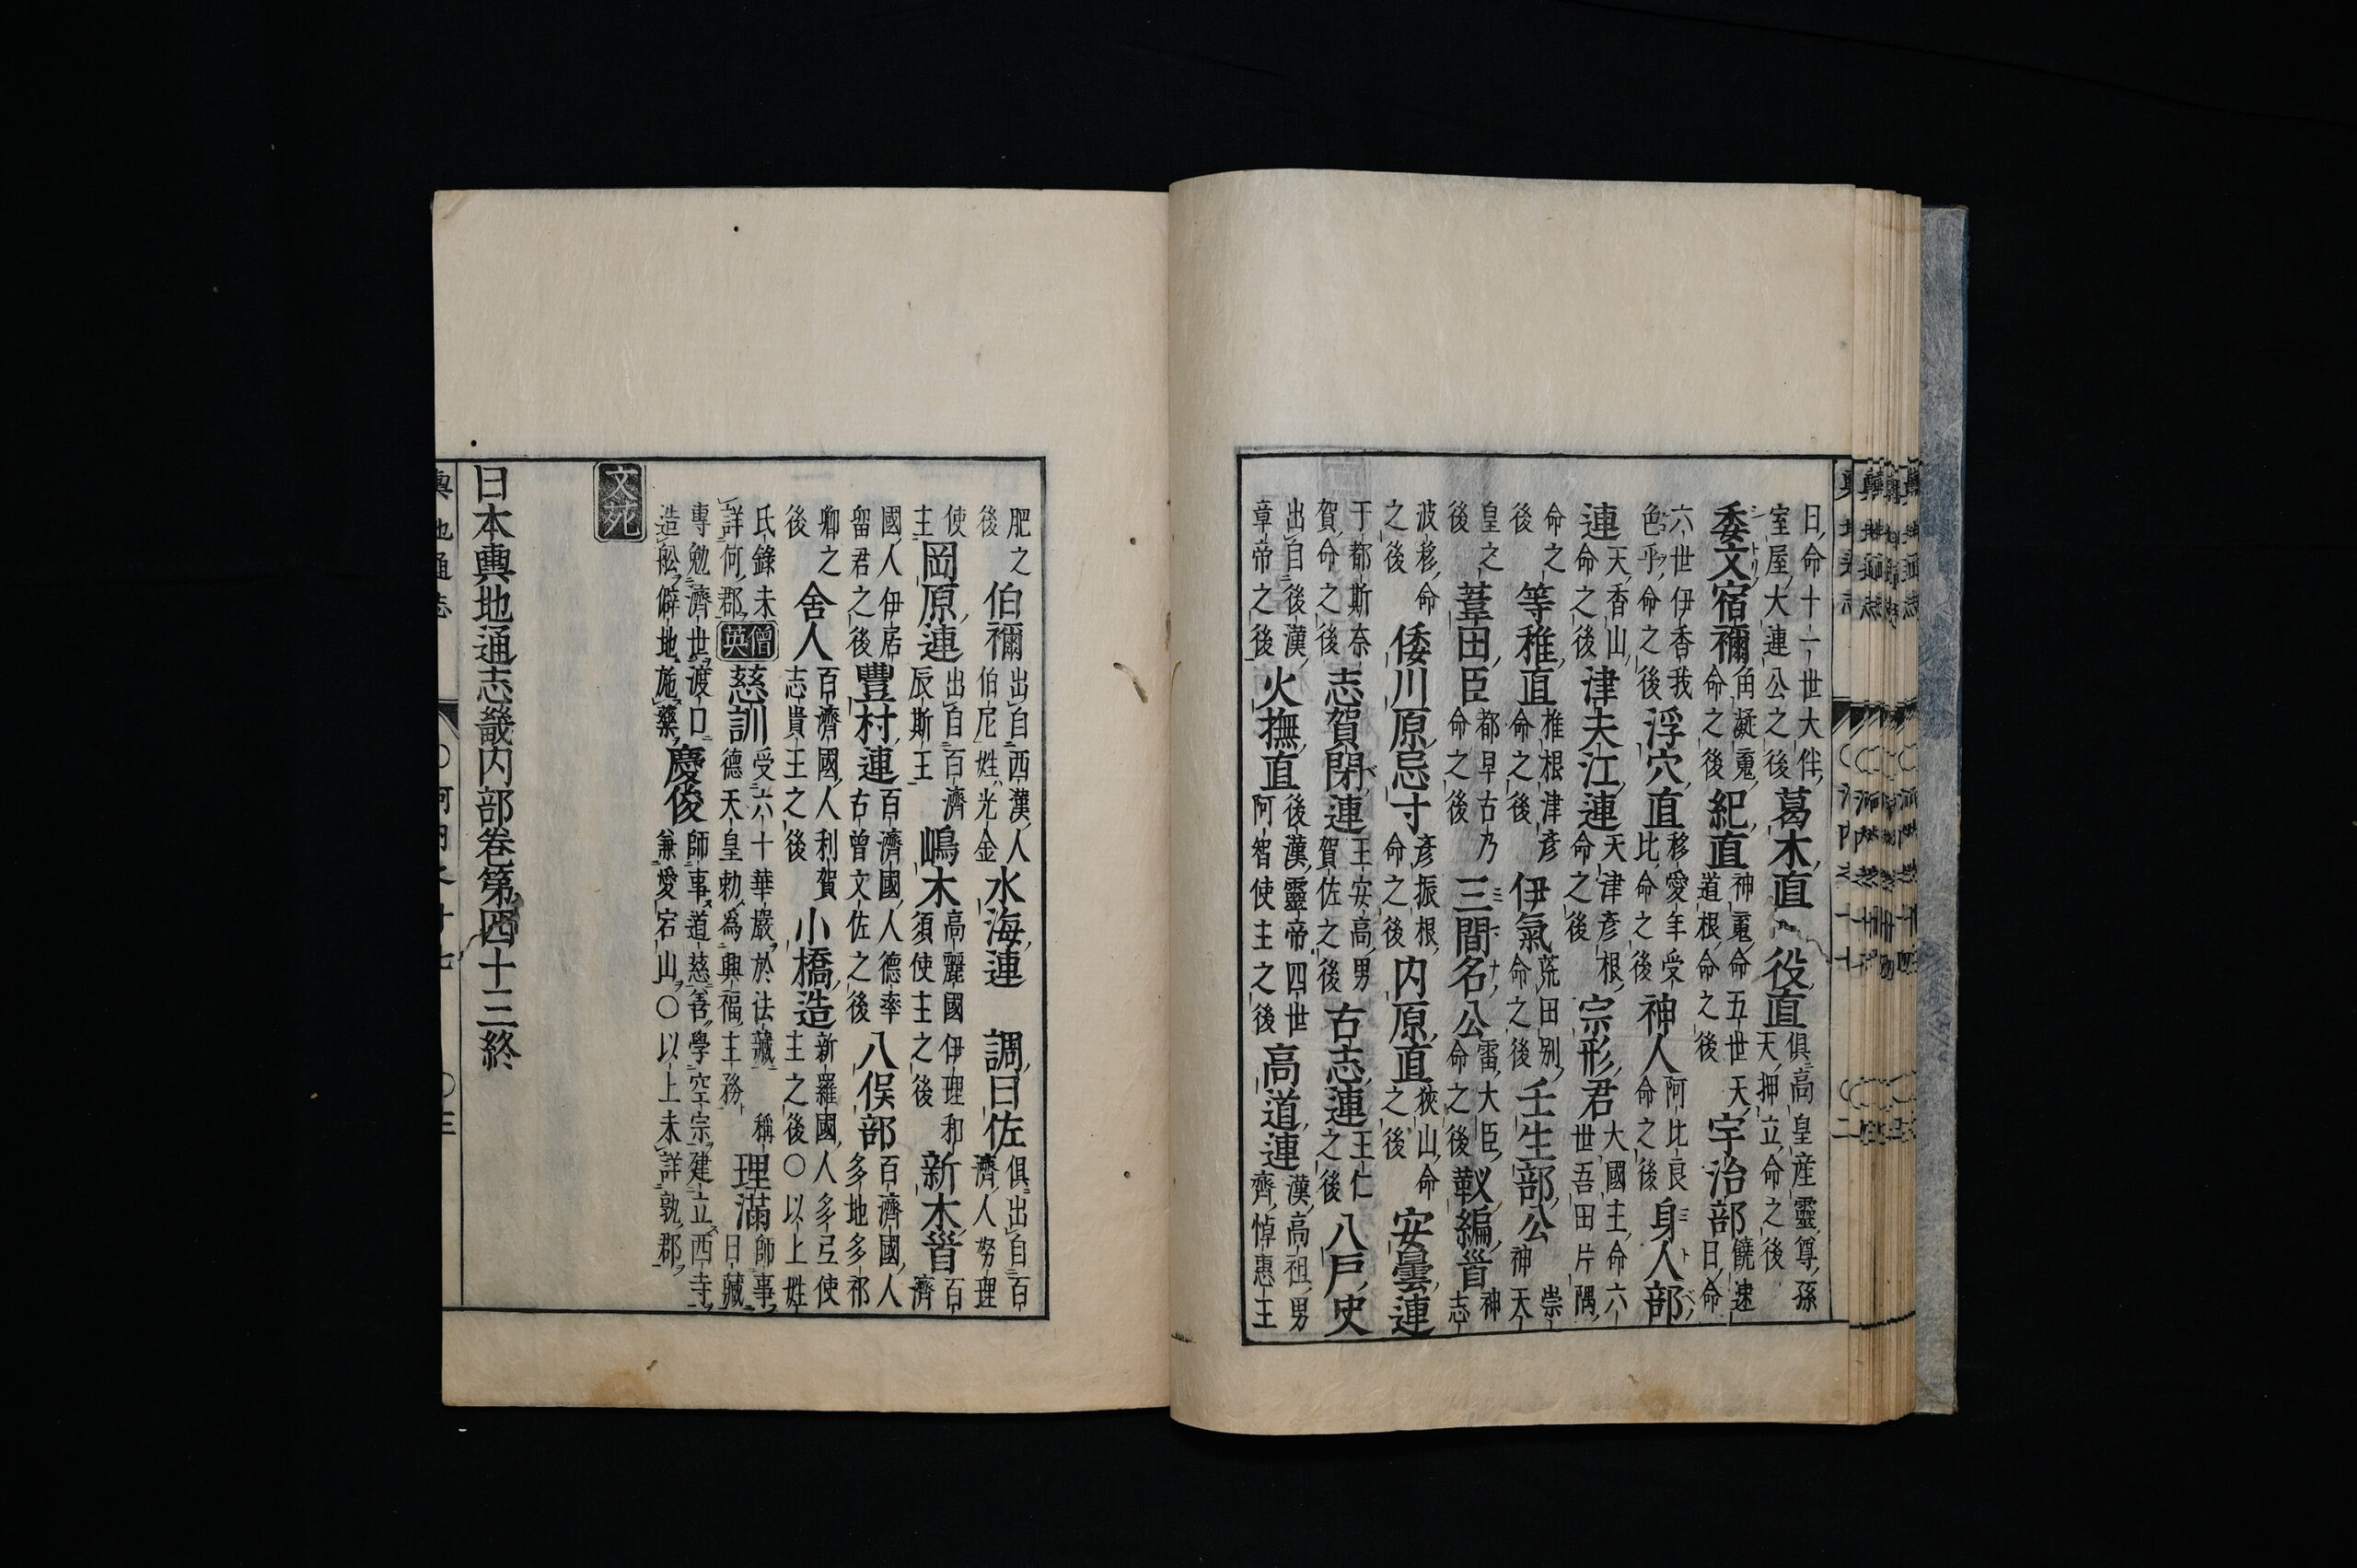 日命十一世大伴室屋大連公之後葛木直役直俱高皇産靈尊孫天押立命之後
委文宿禰角凝䰠命之後紀直神䰠命五世天道根命之後宇治部饒速日命
六世伊香我色乎命之後浮穴直移愛牟受比命之後神人阿比良命之後身人部
連天香山命之後津夫江連天津彦根命之後宗形君大國主命六世吾田片隅
命之後等稚直椎根津彦命之後伊氣荒田別命之後壬生部公崇神天
皇之後葦田臣都早古乃命之後三間名公雷大臣命之後靫編首神志
波移命之後倭川原忌寸彦振根命之後内原直狹山命之後安曇連
于都斯奈賀命之後志賀閉連王安高男賀佐之後古志連王仁之後八戸史
出自後漢章帝之後火撫直後漢靈帝四世阿智使主之後高道連漢高祖男齊悼惠王
肥之後伯禰出自西漢人伯尼姓光金水海連調日佐俱出自百濟人努理
使主岡原連出自百濟辰斯王嶋木高麗國伊理和須使主之後新木首百濟
國人伊居留君之後豐村連百濟國人德率古曾文佐之後八俣部百濟國人多地多祁
卿之後舍人百濟國人利賀志貴王之後小橋造新羅國人多弖使主之後○以上姓
氏錄未詳何郡僧英慈訓受六十華嚴於法藏稱德天皇勅為興福主務理滿師事日藏
專勉濟世渡口造舩僻地施藥慶俊師事道慈善學空宗建立西寺兼愛宕山○以上未詳孰郡
文苑
日本輿地通志畿内部卷第四十三終